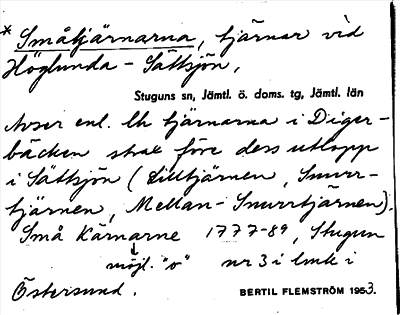 * Småtjärnarna, tjärnar vid
Höglunda - Sättsjön,
Stuguns sn, Jämtl. ö. doms. tg, Jämtl. län
Avser enl. lk tjärnarna i Diger-
bäcken strax före dess utlopp
i Sättsjön (Lilltjärnen, Snurr-
tjärnen, Mellan-Snurrtjärnen).
Små Kärnarne 1777-89, Stugun
möjl. "o" nr 3 i lmk i
Östersund.
BERTIL FLEMSTRÖM 1953.